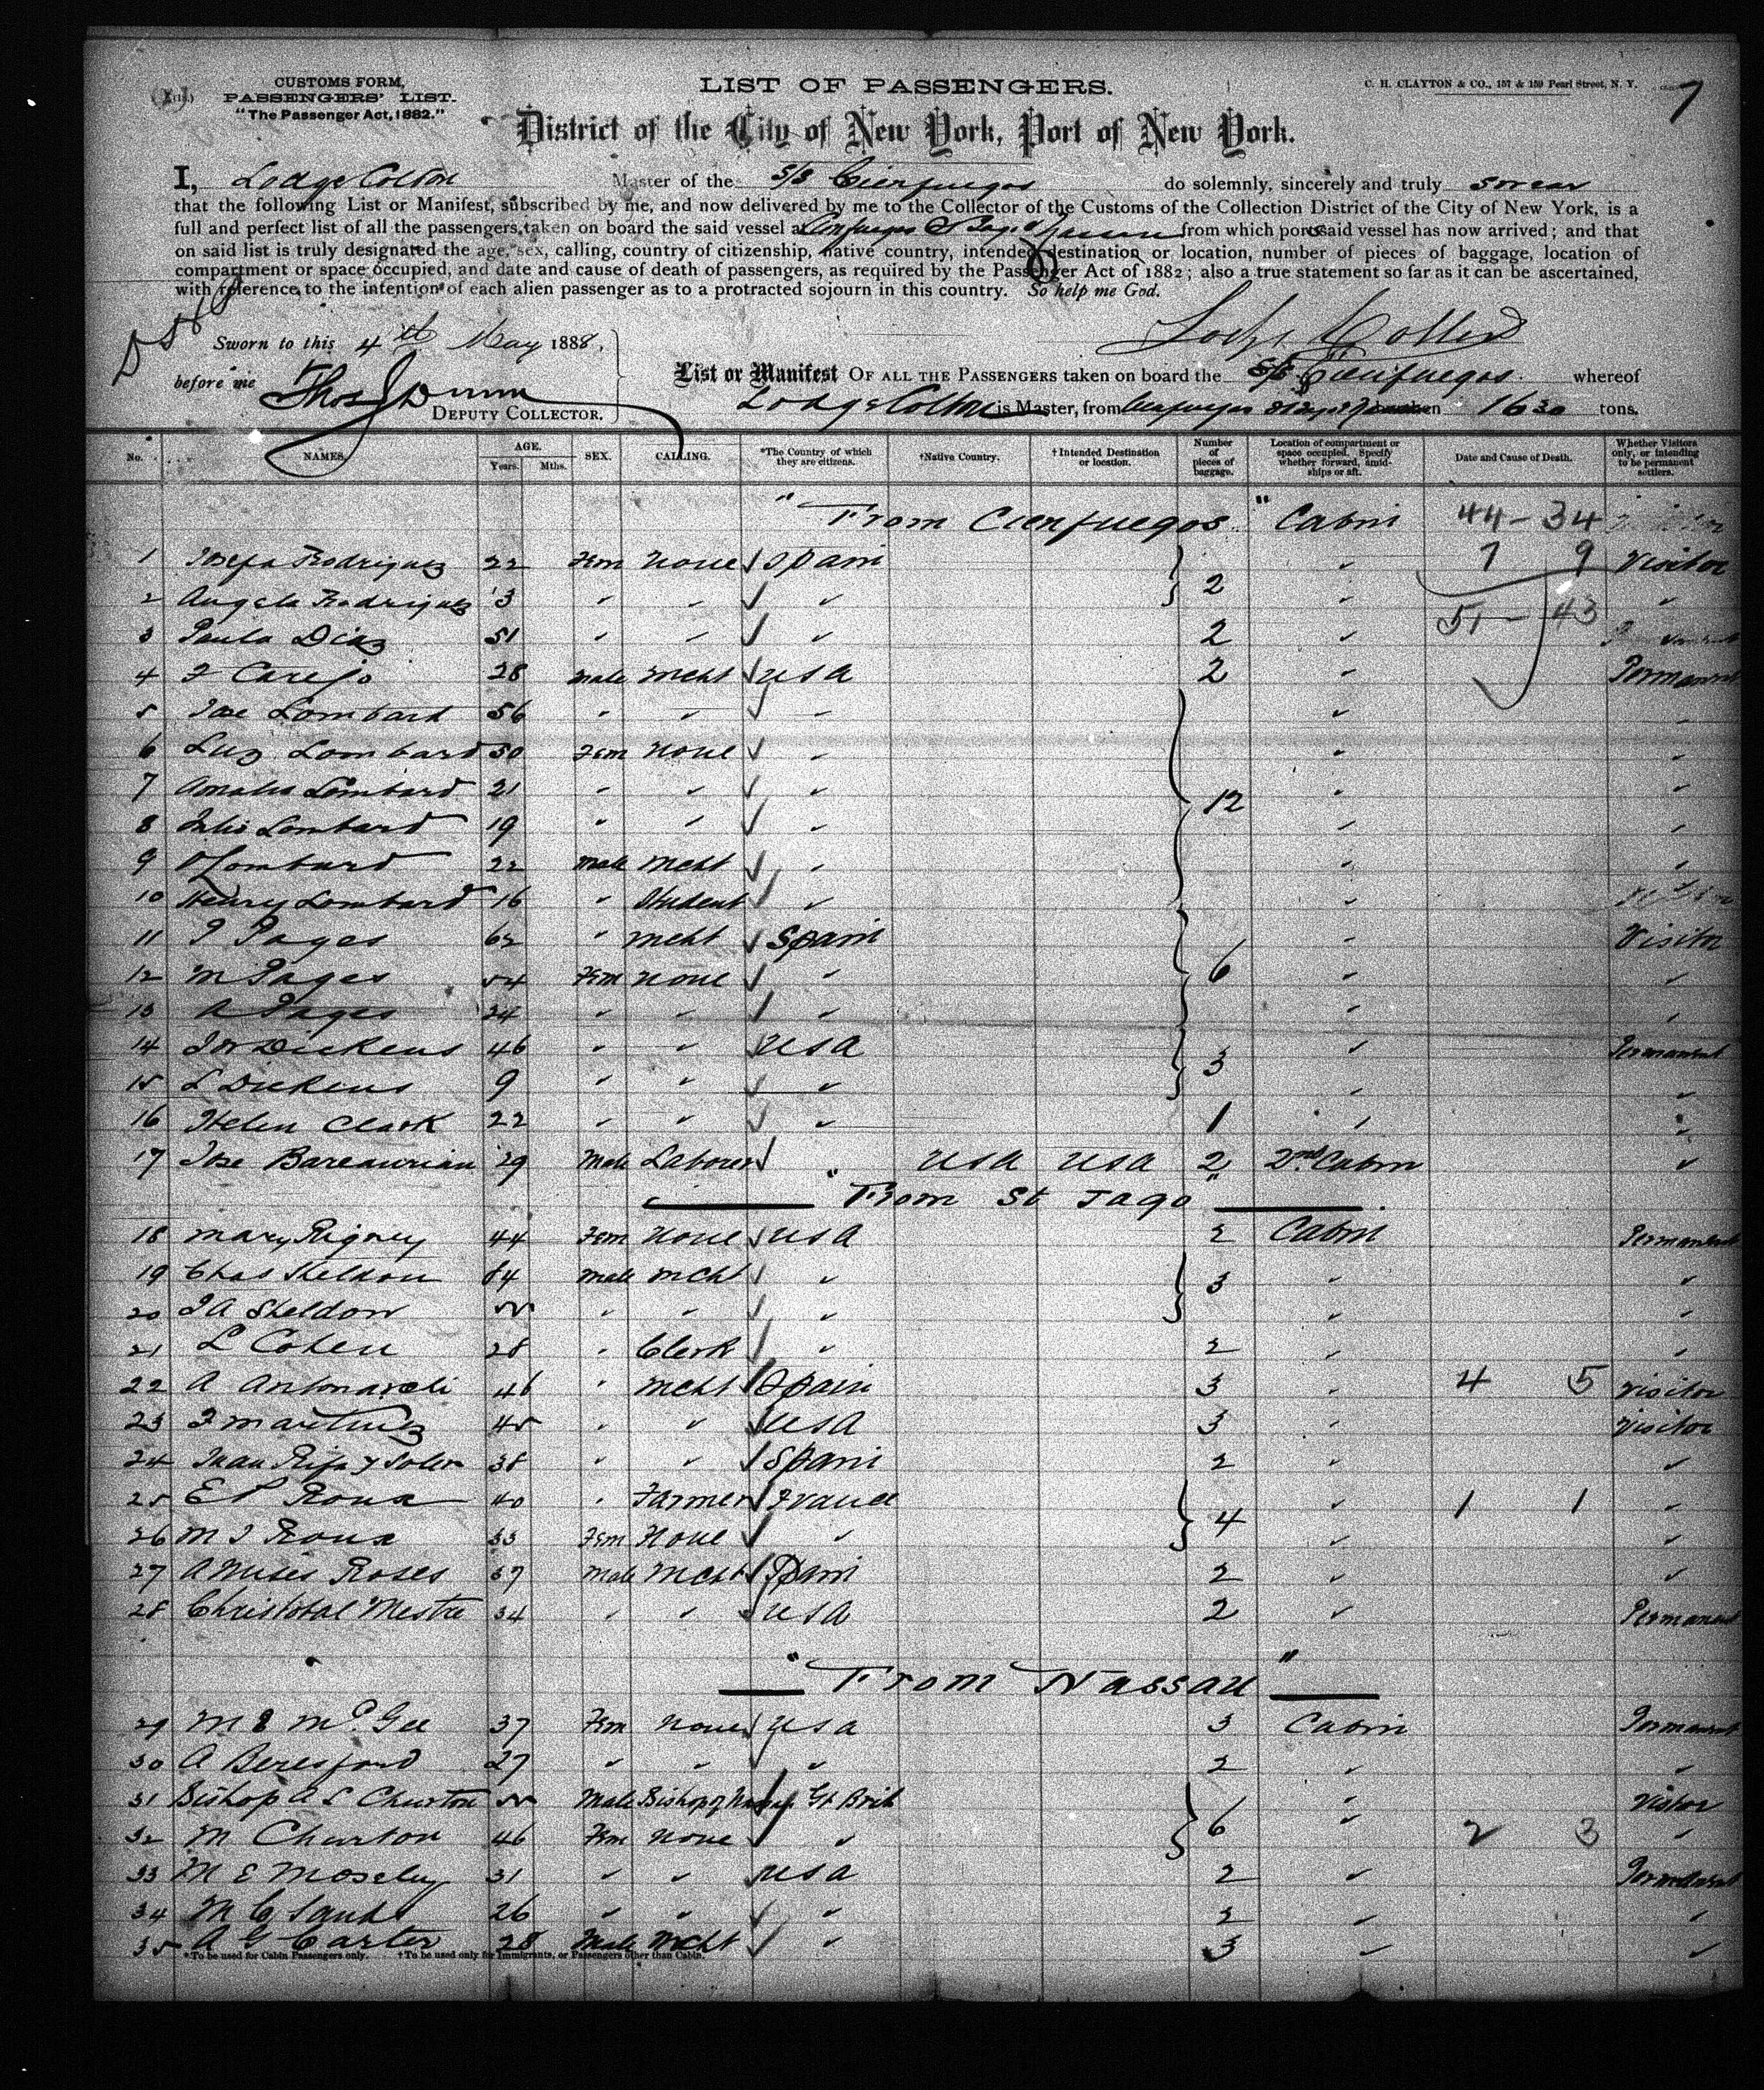 CUSTOMS FORM,
PASSENGERS' LIST.
"The Passenger Act, 1882."
LIST OF PASSENGERS.
C. H. CLAYTON & CO., 157 & 159 Pearl Street, N. Y.
7
District of the City of New York, Port of New York.
I, Lodge Colton Master of the S/S Cienfuegos do solemnly, sincerely and truly swear
that the following List or Manifest, subscribed by me, and now delivered by me to the Collector of the Customs of the Collection District of the City of New York, is a
full and perfect list of all the passengers taken on board the said vessel at Cienfuegos St Jago & Nassau from which ports said vessel has now arrived; and that
on said list is truly designated the age, sex, calling, country of citizenship, native country, intended destination or location, number of pieces of baggage, location of
compartment or space occupied, and date and cause of death of passengers, as required by the Passenger Act of 1882; also a true statement so far as it can be ascertained,
with reference to the intention of each alien passenger as to a protracted sojourn in this country. So help me God.
Lodge Colton
Sworn to this 4th May 1888,
before me Thos J Dunn
DEPUTY COLLECTOR.
List or Manifest OF ALL THE PASSENGERS taken on board the S/S Cienfuegos whereof
Lodge Colton is Master, from Cienfuegos St Jago & Nassau burthen 1630 tons.
No. NAMES. AGE. Years. Mths. SEX. CALLING. *The Country of which they are citizens. †Native Country. †Intended Destination or location. Number of pieces of baggage. Location of compartment or space occupied. Specify whether forward, amidships or aft. Date and Cause of Death. Whether Visitors only, or intending to be permanent settlers.
" From Cienfuegos " Cabin 44 - 34
1 Josefa Rodriguez 22 Fem None Spain 2 " 7 9 Visitor
2 Angela Rodriguez 3 " " " " "
3 Paula Diaz 51 " " " 2 " 51 - 43
4 F Carejo 28 Male Mcht USA 2 " Permanent
5 Jose Lombard 56 " " " " "
6 Luz Lombard 50 Fem None " " "
7 Amalia Lombard 21 " " " 12 " "
8 Julio Lombard 19 " " " " "
9 Lombard 22 Male Mcht " " "
10 Henry Lombard 16 " Student " "
11 P Pages 62 " Mcht Spain 6 " Visitor
12 M Pages 54 Fem None " " "
13 A Pages 24 " " " " "
14 J W Dickens 46 " " USA 3 " Permanent
15 L Dickens 9 " " " " "
16 Helen Clark 22 " " " 1 " "
17 Jose 29 Male Laborer " USA USA 2 2nd Cabin "
" From St Jago "
18 Mary Rigney 44 Fem None USA 2 Cabin Permanent
19 Chas Sheldon 84 Male Mcht " 3 " "
20 J A Sheldon 55 " " " " "
21 L Cohen 28 " Clerk " 2 " "
22 A Antomarchi 46 " Mcht Spain 3 " 4 5 Visitor
23 F Martinez 45 " " USA 3 " Visitor
24 Juan Rifa y Soler 38 " " Spain 2 " "
25 E P Roux 40 " Farmer France 4 " 1 1 "
26 M J Roux 33 Fem None " " "
27 A Roses 37 Male Mcht Spain 2 " "
28 Christobal Mestre 34 " " USA 2 " Permanent
" From Nassau "
29 M E McGee 37 Fem None USA 3 Cabin Permanent
30 A Beresford 27 " " " 2 " "
31 Bishop A S Churton 55 Male Bishop of Nassau Gt Brit 6 " Visitor
32 M Churton 46 Fem None " " 2 3 "
33 M E Moseley 31 " " USA 2 " Permanent
34 M C Sands 26 " " " 2 " "
35 A G Carter 28 Male Mcht " 3 " "
*To be used for Cabin Passengers only. †To be used only for Immigrants, or Passengers other than Cabin.